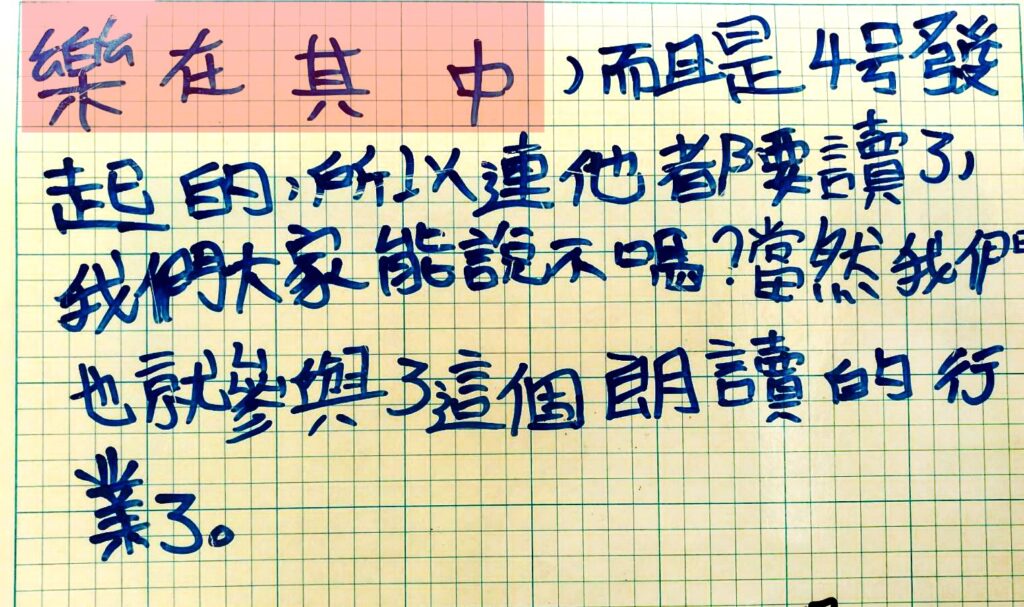 樂在其中，而且是4号發
起的，所以連他都要讀了，
我們大家能說不嗎？當然我們
也就參與了這個朗讀的行
業了。